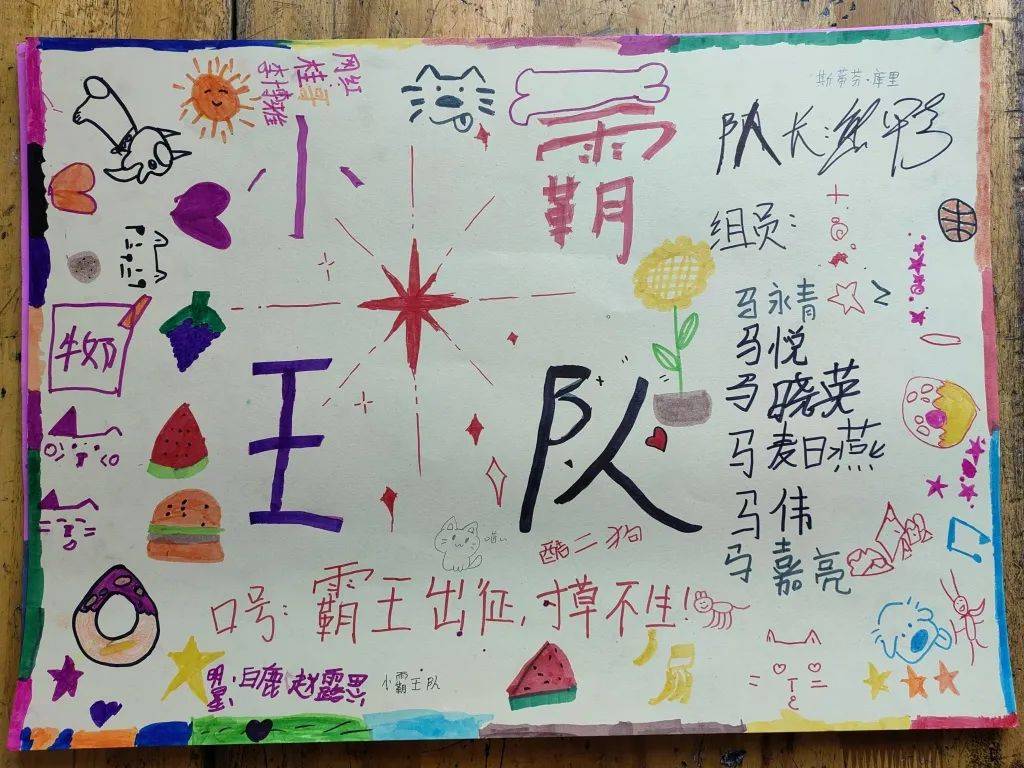 网红
桂哥
李博雅
斯蒂芬·库里
小霸
王队
队长：熊鸭
组员：
马永青
马悦
马晓英
马麦日燕
马伟
马嘉亮
牛奶
喵~
酷二狗
口号：霸王出征，寸草不生！
明星：白鹿 赵露思
小霸王队